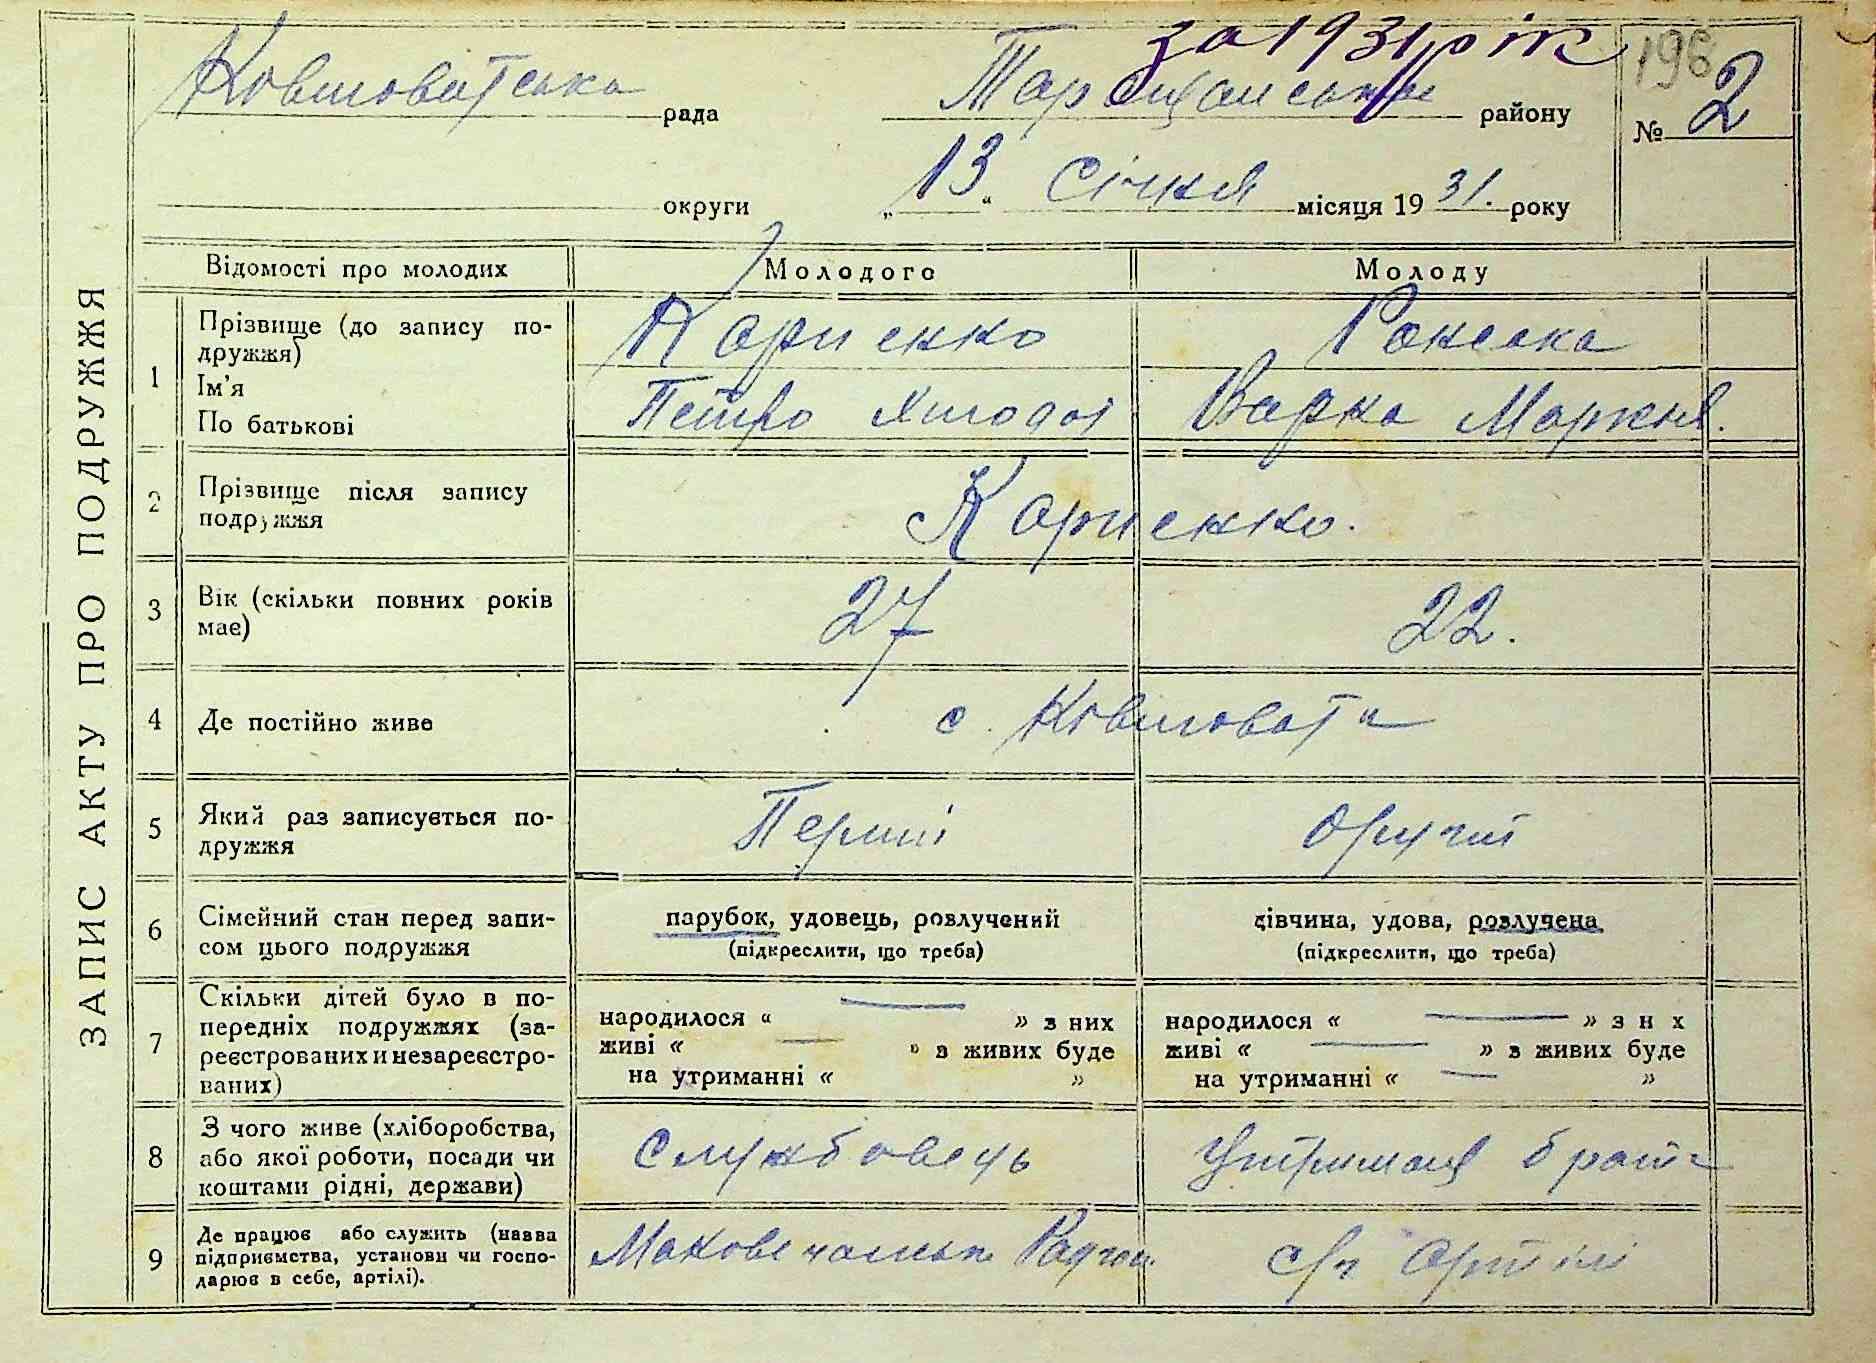 за 1931 рік
Ковшоватська рада
Таращанськ району
198
№ 2
округи
„13“ січня місяця 1931. року
ЗАПИС АКТУ ПРО ПОДРУЖЖЯ
Відомості про молодих
Молодого
Молоду
1
Прізвище (до запису по-
дружжя)
Ім'я
По батькові
Карпенко
Петро
Ронська
Варка Маркія.
2
Прізвище після запису
подружжя
Карпенко.
3
Вік (скільки повних років
має)
27
22.
4
Де постійно живе
с. Ковшовата
5
Який раз записується по-
дружжя
Перший
другий
6
Сімейний стан перед запи-
сом цього подружжя
парубок, удовець, розлучений
(підкреслити, що треба)
дівчина, удова, розлучена
(підкреслити, що треба)
7
Скільки дітей було в по-
передніх подружжях (за-
реєстрованих и незареєстро-
ваних)
народилося « — » з них
живі « — » з живих буде
на утриманні « »
народилося « — » з н х
живі « — » з живих буде
на утриманні « — »
8
З чого живе (хліборобства,
або якої роботи, посади чи
коштами рідні, держави)
Службовець
Утриманя брата
9
Де працює або служить (назва
підприємства, установи чи госпо-
дарює в себе, артілі).
с/г артілі